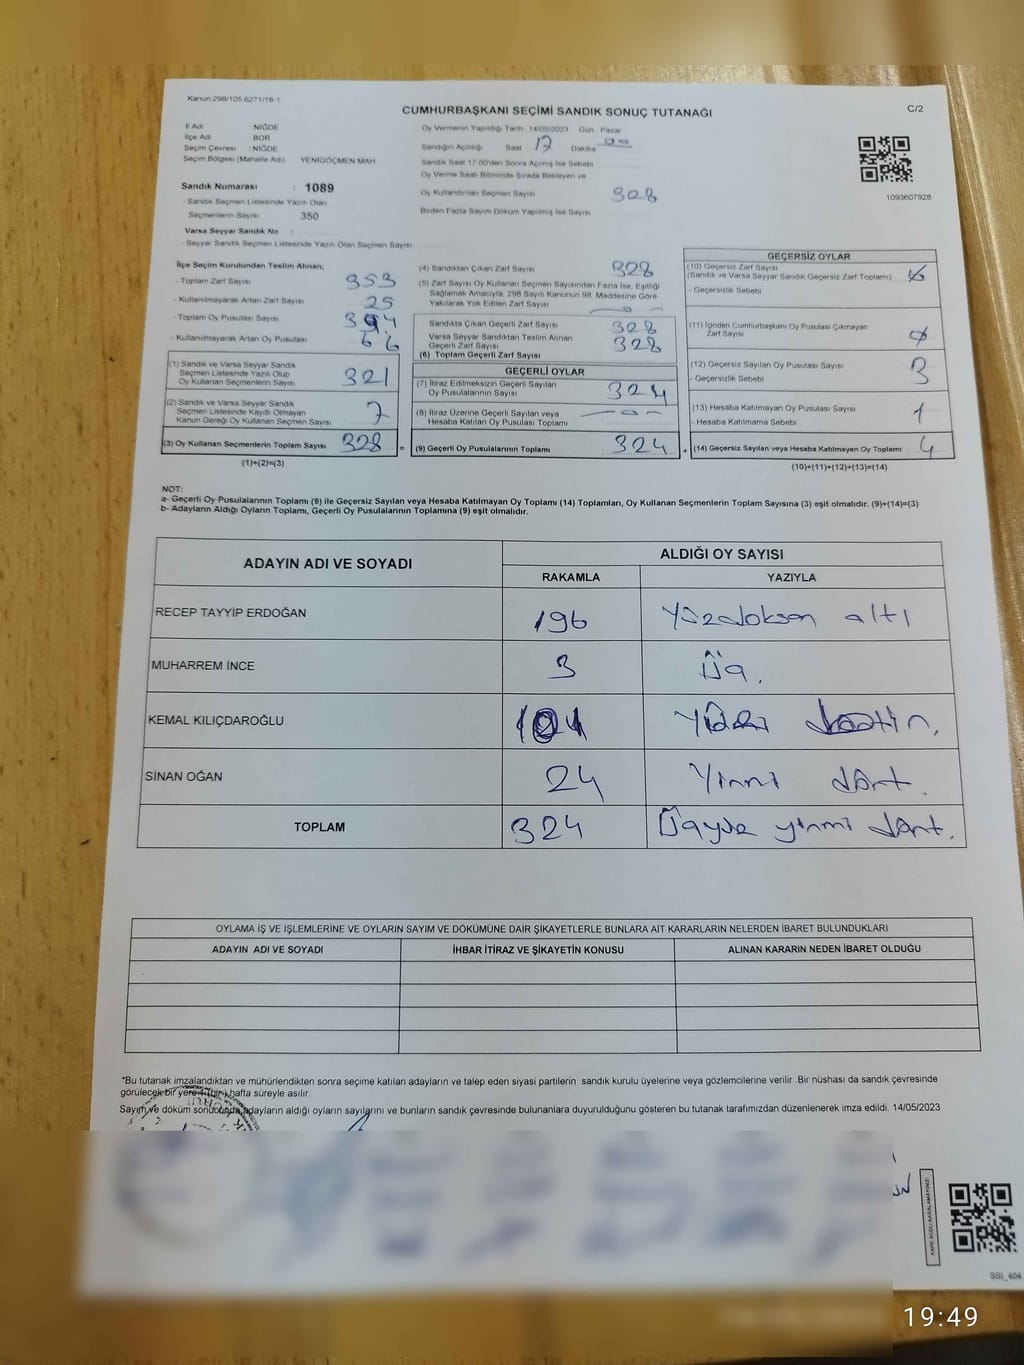 Kanun:298/105.6271/18-1
CUMHURBAŞKANI SEÇİMİ SANDIK SONUÇ TUTANAĞI
C/2
İl Adı NİĞDE
İlçe Adı BOR
Seçim Çevresi : NİĞDE
Seçim Bölgesi (Mahalle Adı) YENİGÖÇMEN MAH.
Sandık Numarası : 1089
Sandık Seçmen Listesinde Yazılı Olan
Seçmenlerin Sayısı : 350
Varsa Seyyar Sandık No
- Seyyar Sandık Seçmen Listesinde Yazılı Olan Seçmen Sayısı
Oy Vermenin Yapıldığı Tarih 14/05/2023 Gün Pazar
Sandığın Açıldığı Saat 17 Dakika 00
Sandık Saat 17.00'den Sonra Açılmış İse Sebebi
Oy Verme Saati Bitiminde Sırada Bekleyen ve
Oy Kullandırılan Seçmen Sayısı 328
Birden Fazla Sayım Döküm Yapılmış İse Sayısı
1093607928
İlçe Seçim Kurulundan Teslim Alınan;
- Toplam Zarf Sayısı 353
- Kullanılmayarak Artan Zarf Sayısı 25
- Toplam Oy Pusulası Sayısı 394
- Kullanılmayarak Artan Oy Pusulası 66
(1) Sandık ve Varsa Seyyar Sandık
Seçmen Listesinde Yazılı Olup
Oy Kullanan Seçmenlerin Sayısı 321
(2) Sandık ve Varsa Seyyar Sandık
Seçmen Listesinde Kayıtlı Olmayan
Kanun Gereği Oy Kullanan Seçmen Sayısı 7
(3) Oy Kullanan Seçmenlerin Toplam Sayısı 328 =
(1)+(2)=(3)
(4) Sandıktan Çıkan Zarf Sayısı 328
(5) Zarf Sayısı Oy Kullanan Seçmen Sayısından Fazla İse, Eşitliği
Sağlamak Amacıyla, 298 Sayılı Kanunun 98. Maddesine Göre
Yakılarak Yok Edilen Zarf Sayısı — 0 —
Sandıkta Çıkan Geçerli Zarf Sayısı 328
Varsa Seyyar Sandıktan Teslim Alınan
Geçerli Zarf Sayısı 328
(6) Toplam Geçerli Zarf Sayısı
GEÇERLİ OYLAR
(7) İtiraz Edilmeksizin Geçerli Sayılan
Oy Pusulasının Sayısı 324
(8) İtiraz Üzerine Geçerli Sayılan veya
Hesaba Katılan Oy Pusulası Toplamı — 0 —
(9) Geçerli Oy Pusulalarının Toplamı : 324 +
GEÇERSİZ OYLAR
(10) Geçersiz Zarf Sayısı
(Sandık ve Varsa Seyyar Sandık Geçersiz Zarf Toplamı)
- Geçersizlik Sebebi
(11) İçinden Cumhurbaşkanı Oy Pusulası Çıkmayan
Zarf Sayısı
(12) Geçersiz Sayılan Oy Pusulası Sayısı 3
- Geçersizlik Sebebi
(13) Hesaba Katılmayan Oy Pusulası Sayısı 1
- Hesaba Katılmama Sebebi
(14) Geçersiz Sayılan veya Hesaba Katılmayan Oy Toplamı 4
(10)+(11)+(12)+(13)=(14)
NOT:
a- Geçerli Oy Pusulalarının Toplamı (9) ile Geçersiz Sayılan veya Hesaba Katılmayan Oy Toplamı (14) Toplamları, Oy Kullanan Seçmenlerin Toplam Sayısına (3) eşit olmalıdır. (9)+(14)=(3)
b- Adayların Aldığı Oyların Toplamı, Geçerli Oy Pusulalarının Toplamına (9) eşit olmalıdır.
ADAYIN ADI VE SOYADI
ALDIĞI OY SAYISI
RAKAMLA YAZIYLA
RECEP TAYYİP ERDOĞAN 196 Yüzdoksan altı
MUHARREM İNCE 3 Üç.
KEMAL KILIÇDAROĞLU 101
SİNAN OĞAN 24 Yirmi dört.
TOPLAM 324 Üçyüz yirmi dört.
OYLAMA İŞ VE İŞLEMLERİNE VE OYLARIN SAYIM VE DÖKÜMÜNE DAİR ŞİKAYETLERLE BUNLARA AİT KARARLARIN NELERDEN İBARET BULUNDUKLARI
ADAYIN ADI VE SOYADI İHBAR İTİRAZ VE ŞİKAYETİN KONUSU ALINAN KARARIN NEDEN İBARET OLDUĞU
*Bu tutanak imzalandıktan ve mühürlendikten sonra seçime katılan adayların ve talep eden siyasi partilerin sandık kurulu üyelerine veya gözlemcilerine verilir. Bir nüshası da sandık çevresinde
görülecek bir yere 1 (bir) hafta süreyle asılır.
Sayım ve döküm sonucunda adayların aldığı oyların sayılarını ve bunların sandık çevresinde bulunanlara duyurulduğunu gösteren bu tutanak tarafımızdan düzenlenerek imza edildi. 14/05/2023
KARE KODU KARALAMAYINIZ!
SSI_404
19:49